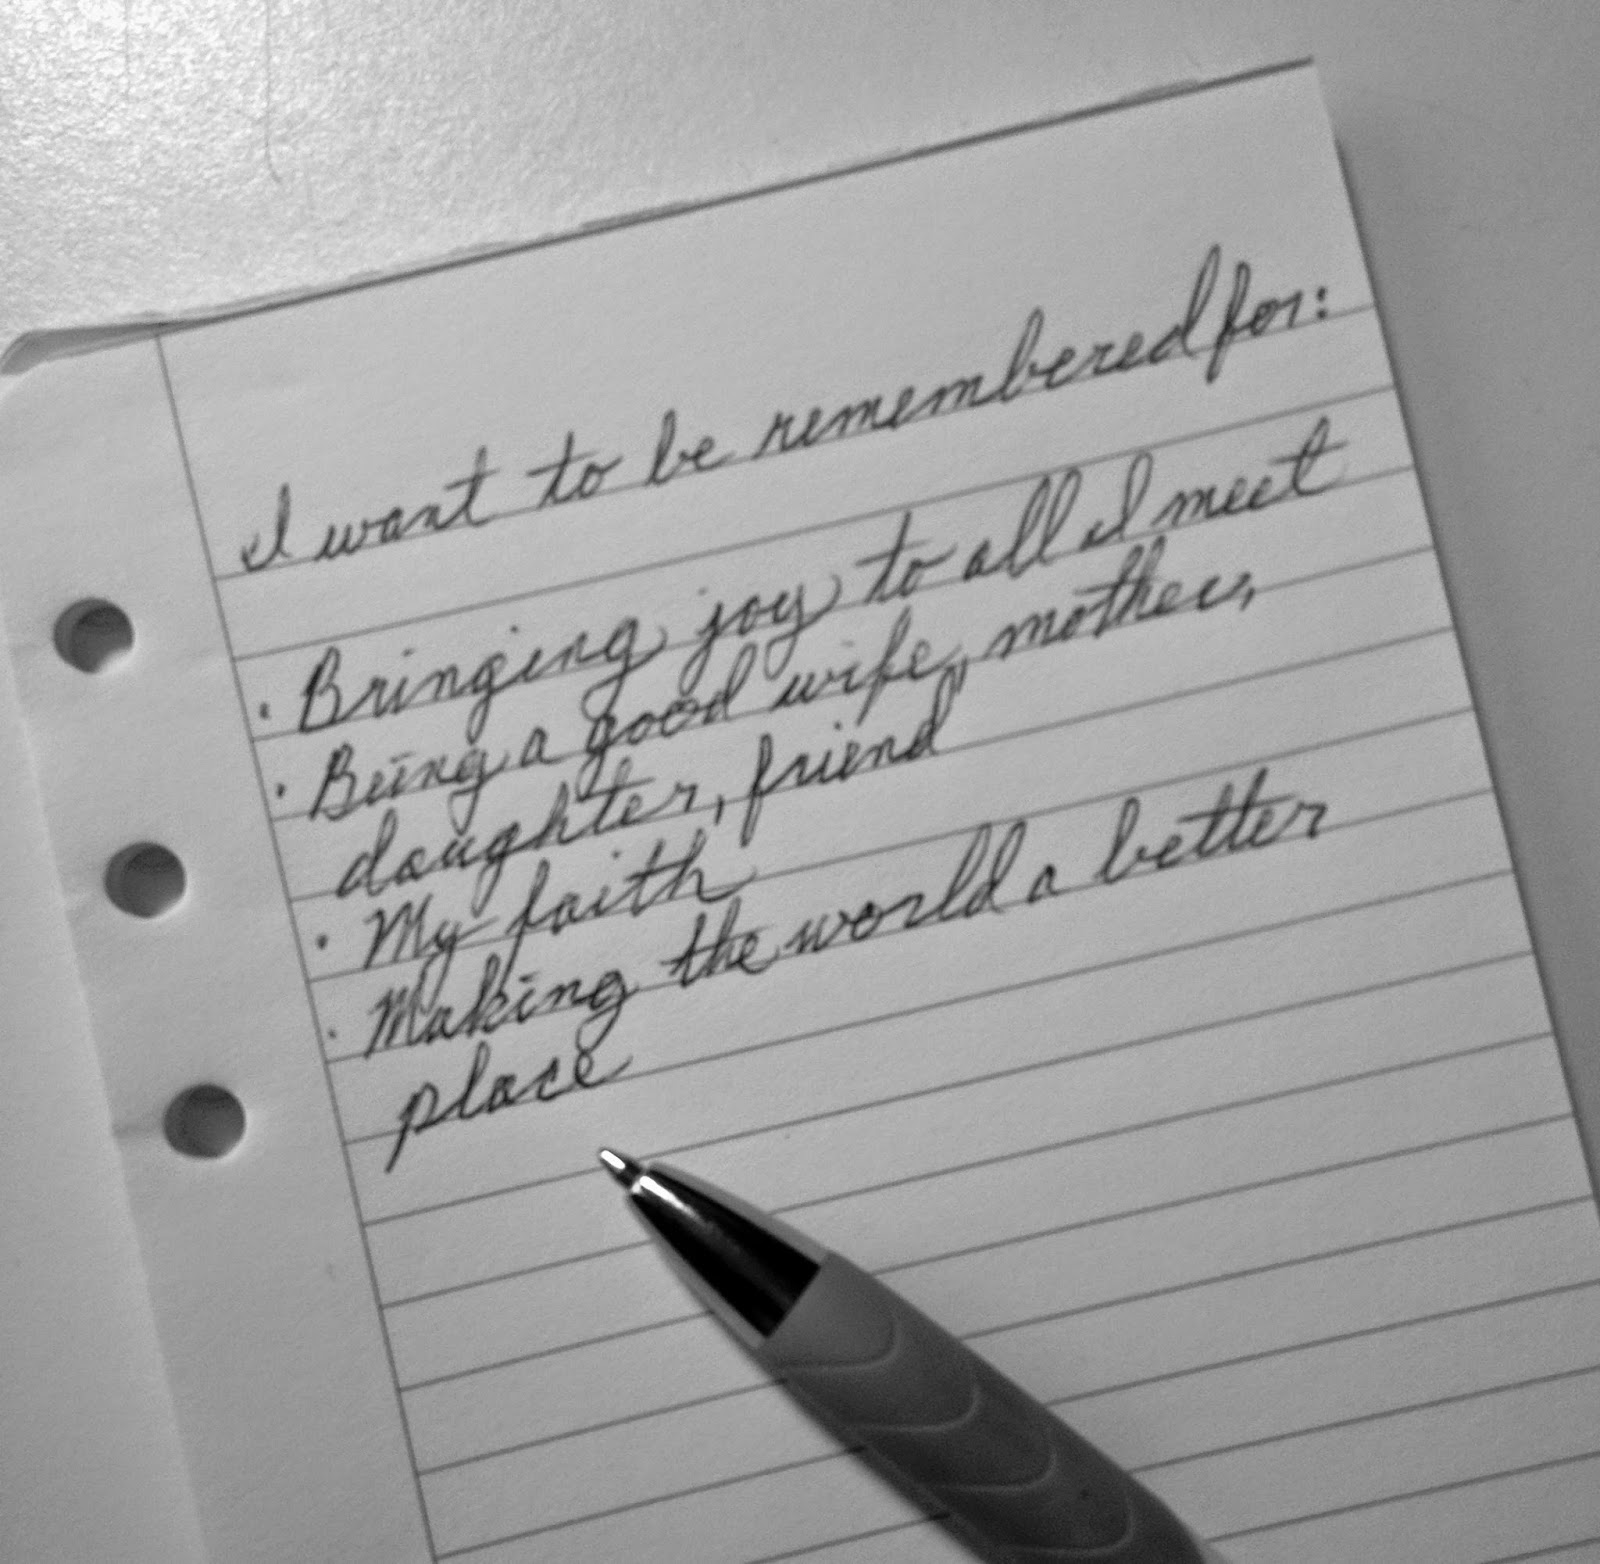 I want to be remembered for:
· Bringing joy to all I meet
· Being a good wife, mother,
daughter, friend
· My faith
· Making the world a better
place